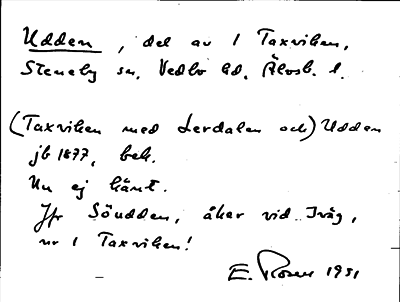 Udden, del av 1 Taxviken,
Steneby sn, Vedbo hd, Älvsb. l.
(Taxviken med Lerdalen och) Udden
jb 1877, beb.
Nu ej känt.
Jfr Söudden, åker vid Iväg,
nr 1 Taxviken!
E. Rosen 1951